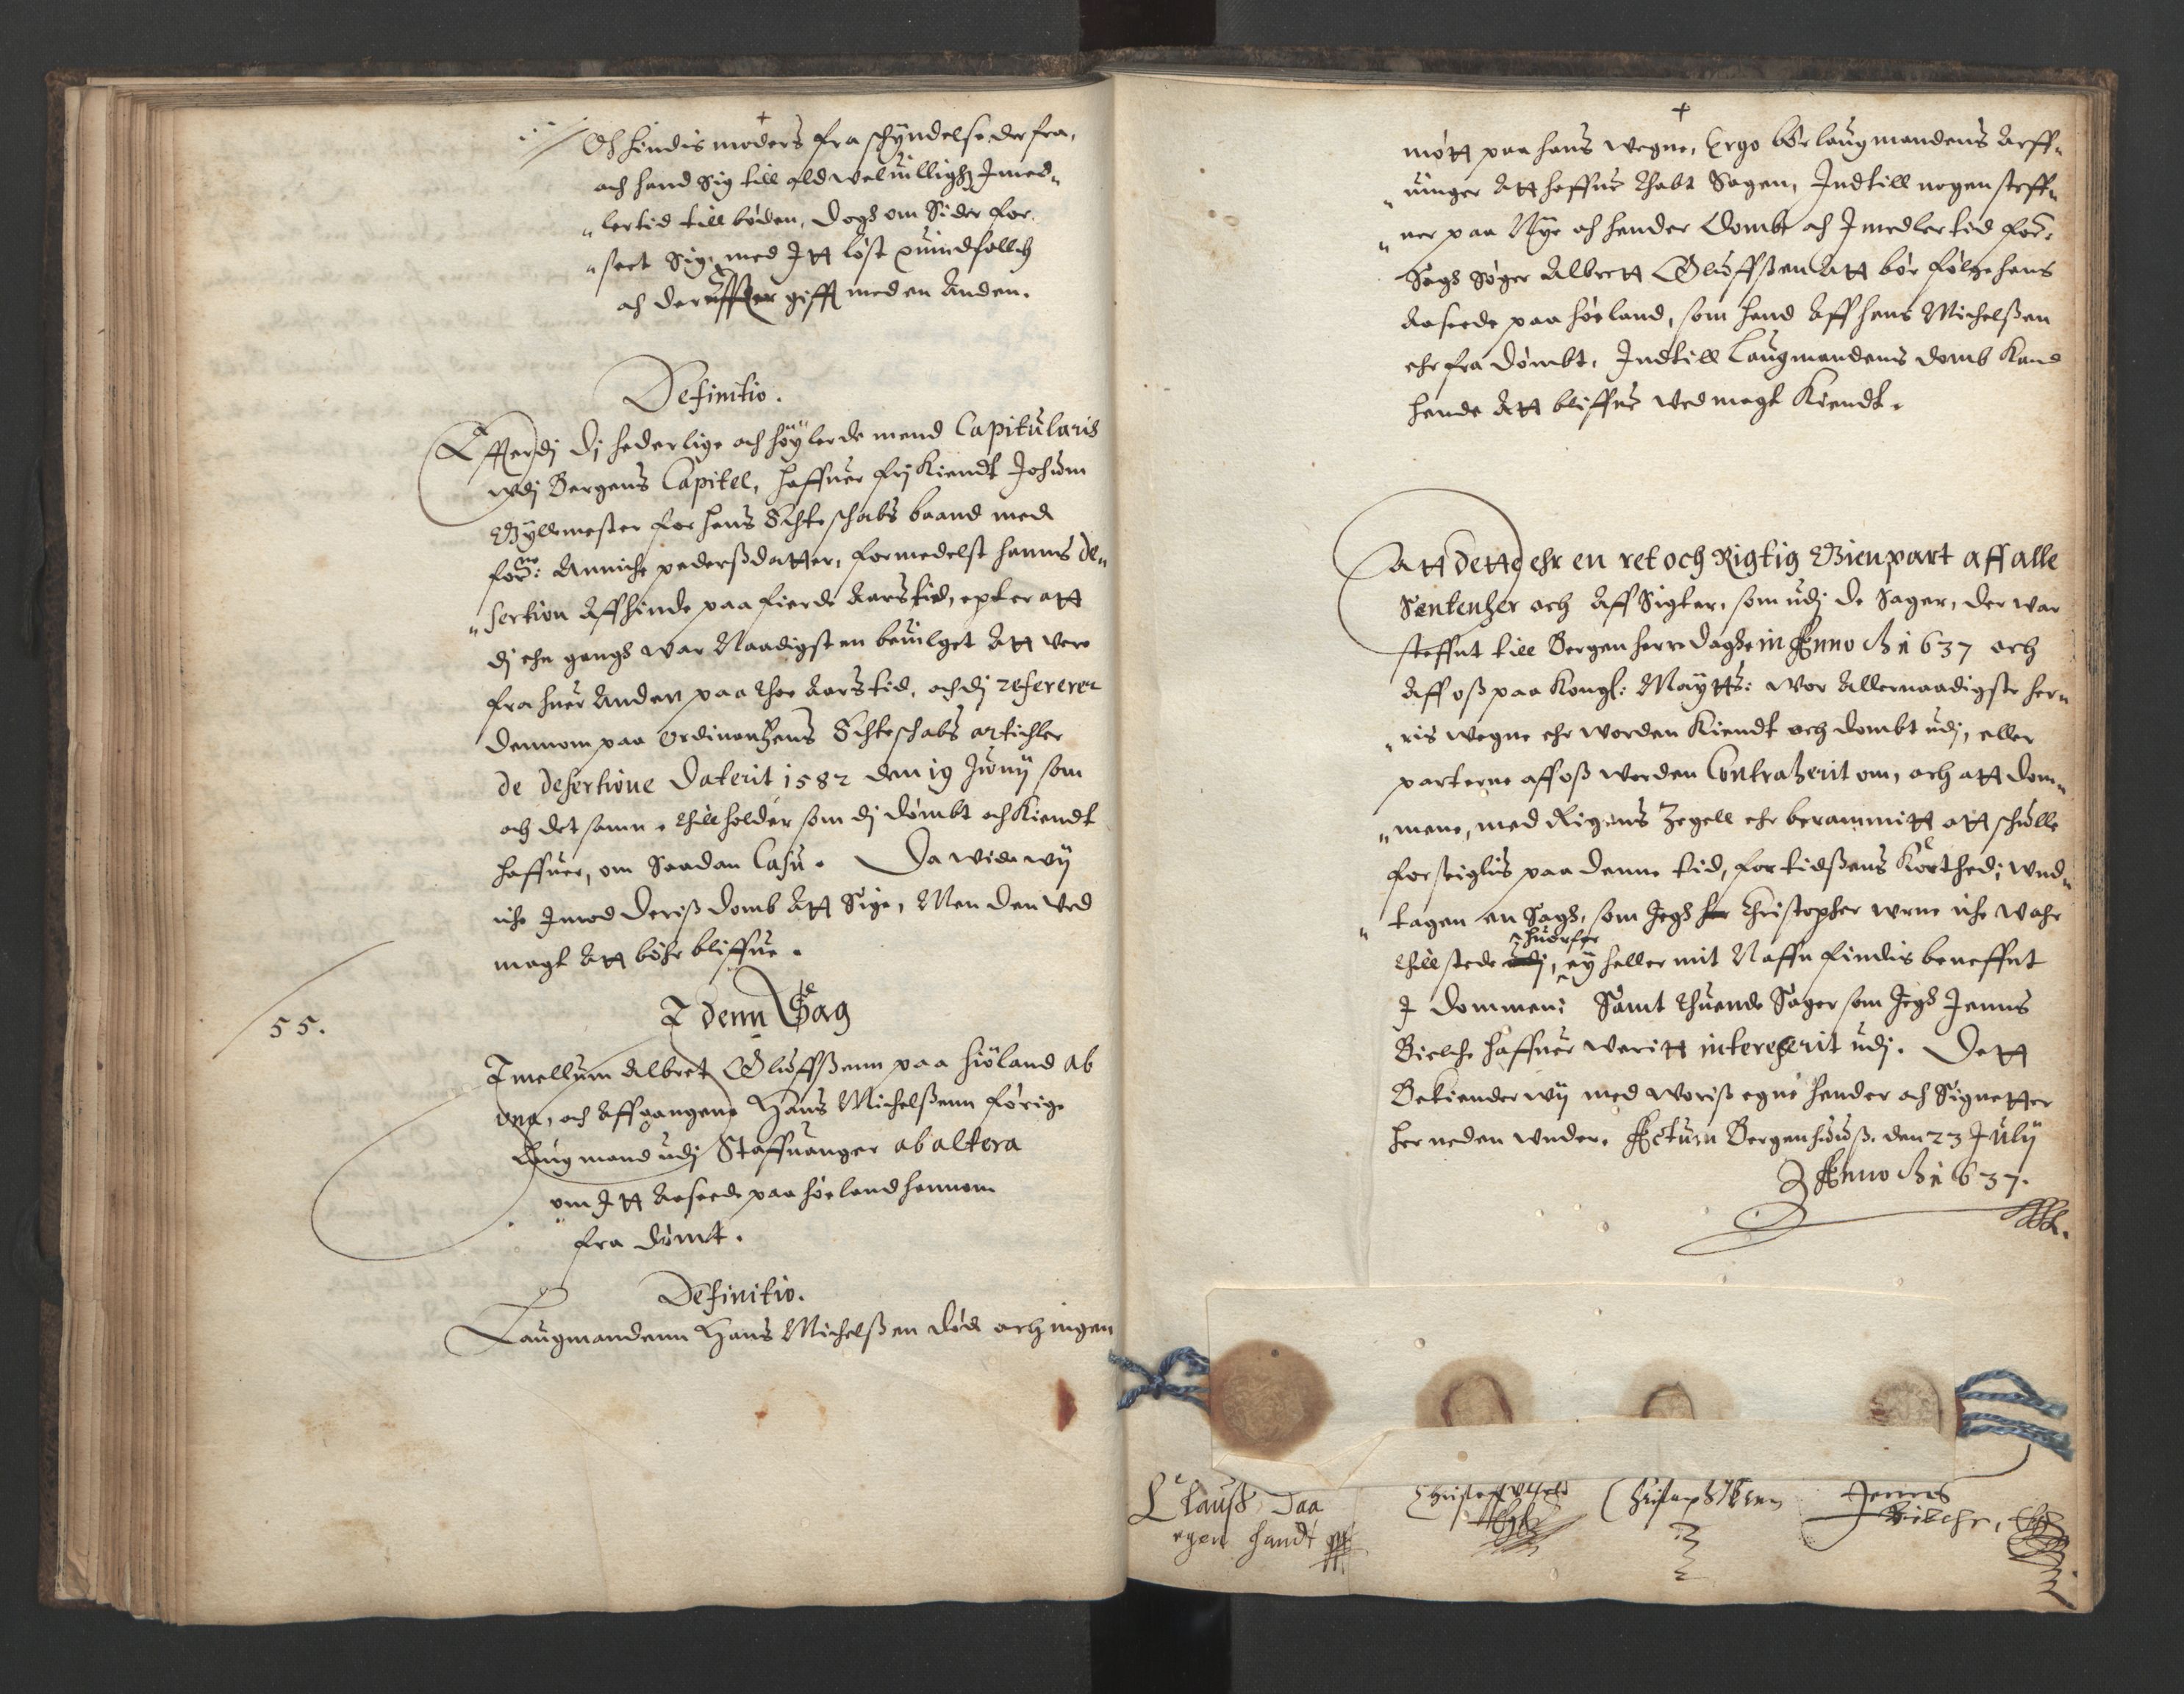 Och hindis moders fraschyndelse derfra,
och hand sig till ald welvilligh: Imed„
„lertid till böden, dogh om Sider for
„seet Sig, med Itt löst quindfolch
och derefter gifft med en anden.
Definitio.
Efterdj dj hederlige och höylerde mend Capitularis
udj Bergens Capitel, haffuer frj kiendt Johum
Byllemester for hans Echteschabs baand med
forne: Anniche pedersdatter, formedelst hannis de„
„sertion aff hinde paa fierde aarstid, epter att
dj ehn gangh war Naadigsten bevilget att vere
fra huer anden paa thoe aarstid, och dj referere
dennom paa ordinantzens Echteschabs artichler
de desertione Daterit 1582 den 19 Junij som
och det samme till holder som dj dömbt och kiendt
haffuer, om Saadan Casu. Da wide wij
iche Imod deris domb att Sige, Men den ved
magt att böhr bliffue.
55.
I denn Sag
Imellum Albret Oluffsenn paa hiöland ab
una, och affgangene Hans Michelsenn forige
Laugmand udj Staffuanger ab altera
om Itt Aasæde paa höeland hannom
fra dömt.
Definitio.
Laugmandenn Hans Michelsen död och ingen
mött paa hans wegne, Ergo bör laugmandens Arff„
„uinger att haffue thabt Sagen, Indtill nogen steff„
„ner paa Nye och hender domb och Imedlertid for:
Sagh Söger Albrett Oluffsen att bör fölge hans
Aasæde paa höeland, som hand aff hans Michelsen
ehr fra dömbt, Indtill Laugmandens domb kand
hende att bliffue ved magt kiendt.
Att dette ehr en ret och Rigtig Gienpart aff alle
Sententzer och aff Sigter, som udj de Sager, der war
steffnt till Bergen herredaghe in Anno 1637 och
aff oss paa Kongl: Maytts: wor allernaadigste her„
„ris wegne ehr worden kiendt och dombt udj, eller
parterne aff oss worden Contraherit om, och att dom„
„mene, med Rigens Zegell ehr berammitt att schulle
forseiglis paa denne tid, for tidsens korthed, und„
„tagen en Sagh, som Jegh her Christopher urne iche wahr
huorfor
till stede udj, ey heller mit Naffn findis beneffnt
I dommen: Samt thuende Sager som Jegh Jenns
Bielche haffuer veritt interesserit udj. Dett
Bekiender wij med woris egne hender och Signetter
her neden under. Actum Bergenhuuss den 23 Julij
Anno 1637.
Clauss Daa
egen handt
Christoffer Urne
Jenns
Bielche,